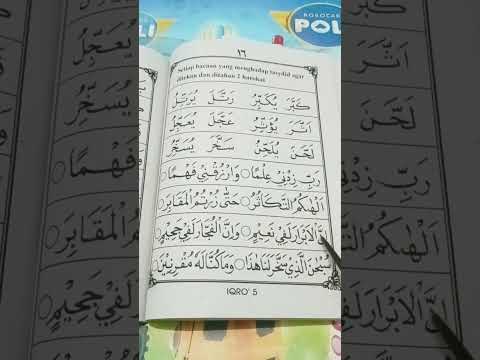 ROBOCAR
POLI
١٦
Setiap bacaan yang menghadap tasydid agar
ditekan dan ditahan 2 harakat
كَبَّرَ يُكَبِّرُ رَتَّلَ يُرَتِّلُ
اَثَّرَ يُؤَثِّرُ عَجَّلَ يُعَجِّلُ
لَحَّنَ يُلَحِّنُ سَخَّرَ يُسَخِّرُ
رَبِّ زِدْنِيْ عِلْمًا ○ وَارْزُقْنِيْ فَهْمًا ○
اَلْهٰىكُمُ التَّكَاثُرُ ○ حَتّٰى زُرْتُمُ الْمَقَابِرَ ○
اِنَّ الْاَبْرَارَ لَفِيْ نَعِيْمٍ ○ وَاِنَّ الْفُجَّارَ لَفِيْ جَحِيْمٍ ○
سُبْحٰنَ الَّذِيْ سَخَّرَ لَنَا هٰذَا ○ وَمَا كُنَّا لَهٗ مُقْرِنِيْنَ ○
IQRO' 5